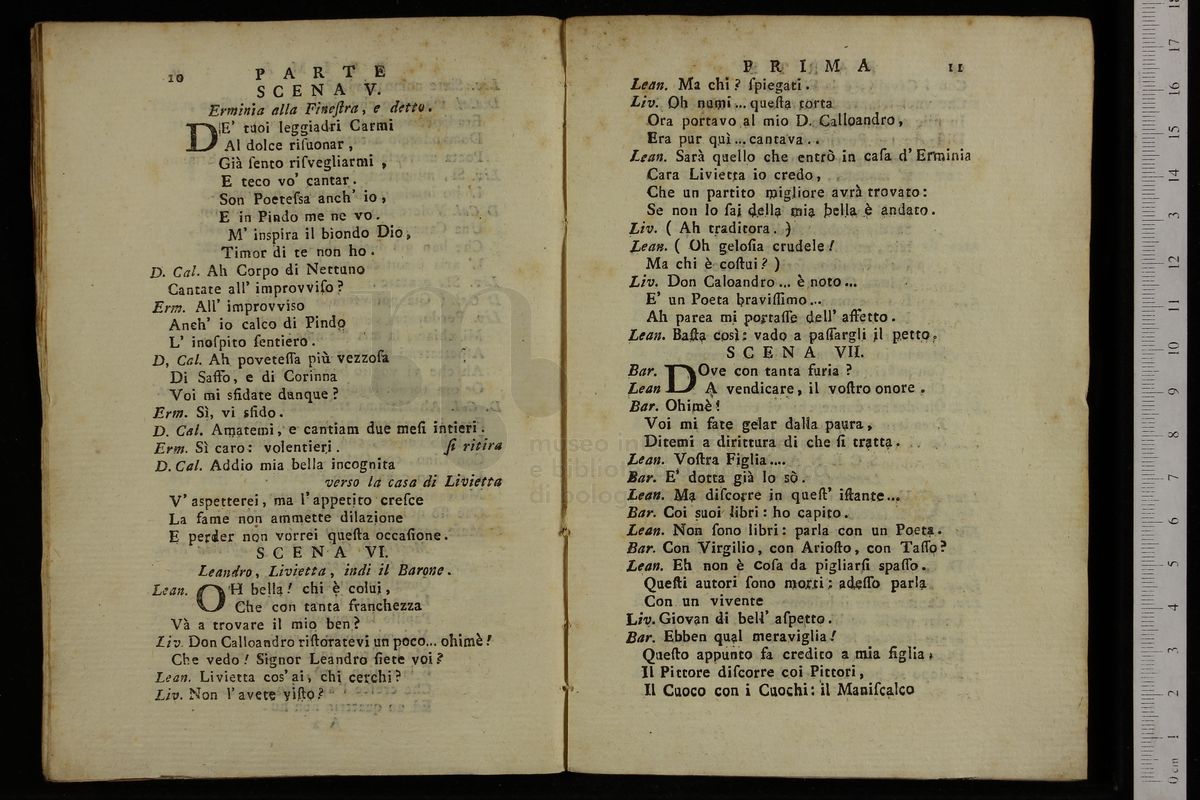 10
P A R T E
S C E N A V.
Erminia alla Fineſtra, e detto.
DE' tuoi leggiadri Carmi
Al dolce riſuonar,
Già ſento riſvegliarmi,
E teco vo' cantar.
Son Poeteſsa anch' io,
E in Pindo me ne vo.
M' inspira il biondo Dio,
Timor di te non ho.
D. Cal. Ah Corpo di Nettuno
Cantate all' improvviſo?
Erm. All' improvviso
Anch' io calco di Pindo
L' inoſpito ſentiero.
D, Cal. Ah poveteſſa più vezzoſa
Di Saffo, e di Corinna
Voi mi sfidate danque?
Erm. Sì, vi sfido.
D. Cal. Amatemi, e cantiam due meſi intieri.
Erm. Sì caro: volentieri. ſi ritira
D. Cal. Addio mia bella incognita
verso la casa di Livietta
V' aspetterei, ma l' appetito creſce
La fame non ammette dilazione
E perder non vorrei queſta occaſione.
S C E N A VI.
Leandro, Livietta, indi il Barone.
Lean. OH bella! chi è colui,
Che con tanta franchezza
Và a trovare il mio ben?
Liv. Don Calloandro riſtoratevi un poco... ohimè!
Che vedo! Signor Leandro ſiete voi?
Lean. Livietta cos' ai, chi cerchi?
Liv. Non l' avete viſto?
P R I M A 11
Lean. Ma chi? ſpiegati.
Liv. Oh numi... queſta torta
Ora portavo al mio D. Calloandro,
Era pur quì... cantava..
Lean. Sarà quello che entrò in caſa d' Erminia
Cara Livietta io credo,
Che un partito migliore avrà trovato:
Se non lo ſai della mia bella è andato.
Liv. ( Ah traditora. )
Lean. ( Oh geloſia crudele!
Ma chi è coſtui? )
Liv. Don Caloandro... è noto...
E' un Poeta braviſſimo...
Ah parea mi portaſſe dell' affetto.
Lean. Baſta così: vado a paſſargli il petto.
S C E N A VII.
Bar. DOve con tanta furia?
Lean A vendicare, il voſtro onore.
Bar. Ohimè!
Voi mi fate gelar dalla paura,
Ditemi a dirittura di che ſi tratta.
Lean. Voſtra Figlia....
Bar. E' dotta già lo sò.
Lean. Ma diſcorre in queſt' iſtante...
Bar. Coi suoi libri: ho capito.
Lean. Non ſono libri: parla con un Poeta.
Bar. Con Virgilio, con Arioſto, con Taſſo?
Lean. Eh non è coſa da pigliarſi spaſſo.
Queſti autori ſono morti: adeſſo parla
Con un vivente
Liv. Giovan di bell' aſpetto.
Bar. Ebben qual meraviglia!
Queſto appunto fa credito a mia figlia,
Il Pittore diſcorre coi Pittori,
Il Cuoco con i Cuochi: il Maniſcalco